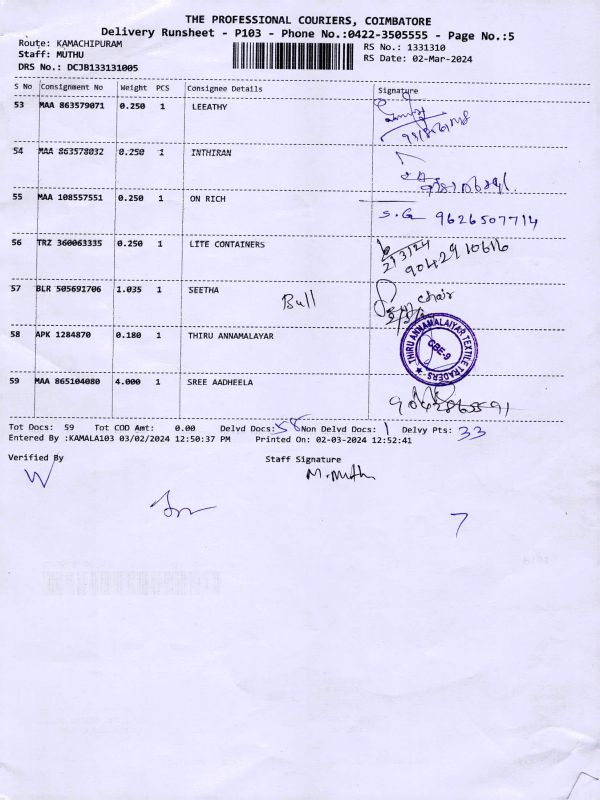 THE PROFESSIONAL COURIERS, COIMBATORE
Delivery Runsheet - P103 - Phone No.:0422-3505555 - Page No.:5
Route: KAMACHIPURAM RS No.: 1331310
Staff: MUTHU RS Date: 02-Mar-2024
DRS No.: DCJB133131005
S No Consignment No Weight PCS Consignee Details Signature
53 MAA 863579071 0.250 1 LEEATHY
54 MAA 863578032 0.250 1 INTHIRAN
55 MAA 108557551 0.250 1 ON RICH
S.G 9626507714
56 TRZ 360063335 0.250 1 LITE CONTAINERS
2/3/24
9042910616
57 BLR 505691706 1.035 1 SEETHA
Bull
chair
58 APK 1284870 0.180 1 THIRU ANNAMALAYAR
THIRU ANNAMALAIYAR TEXTILE TRADERS
CBE-9
59 MAA 865104080 4.000 1 SREE AADHEELA
Tot Docs: 59 Tot COD Amt: 0.00 Delvd Docs: 58 Non Delvd Docs: 1 Delvy Pts: 33
Entered By :KAMALA103 03/02/2024 12:50:37 PM Printed On: 02-03-2024 12:52:41
Verified By Staff Signature
M. Muthu
7